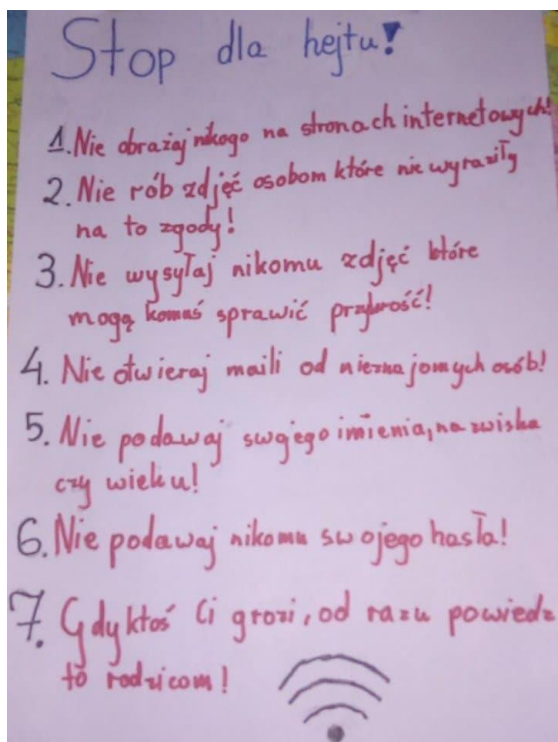 Stop dla hejtu!
1. Nie obrażaj nikogo na stronach internetowych!
2. Nie rób zdjęć osobom które nie wyraziły
na to zgody!
3. Nie wysyłaj nikomu zdjęć które
mogą komuś sprawić przykrość!
4. Nie otwieraj maili od nieznajomych osób!
5. Nie podawaj swojego imienia, nazwiska
czy wieku!
6. Nie podawaj nikomu swojego hasła!
7. Gdy ktoś Ci grozi, od razu powiedz
to rodzicom!